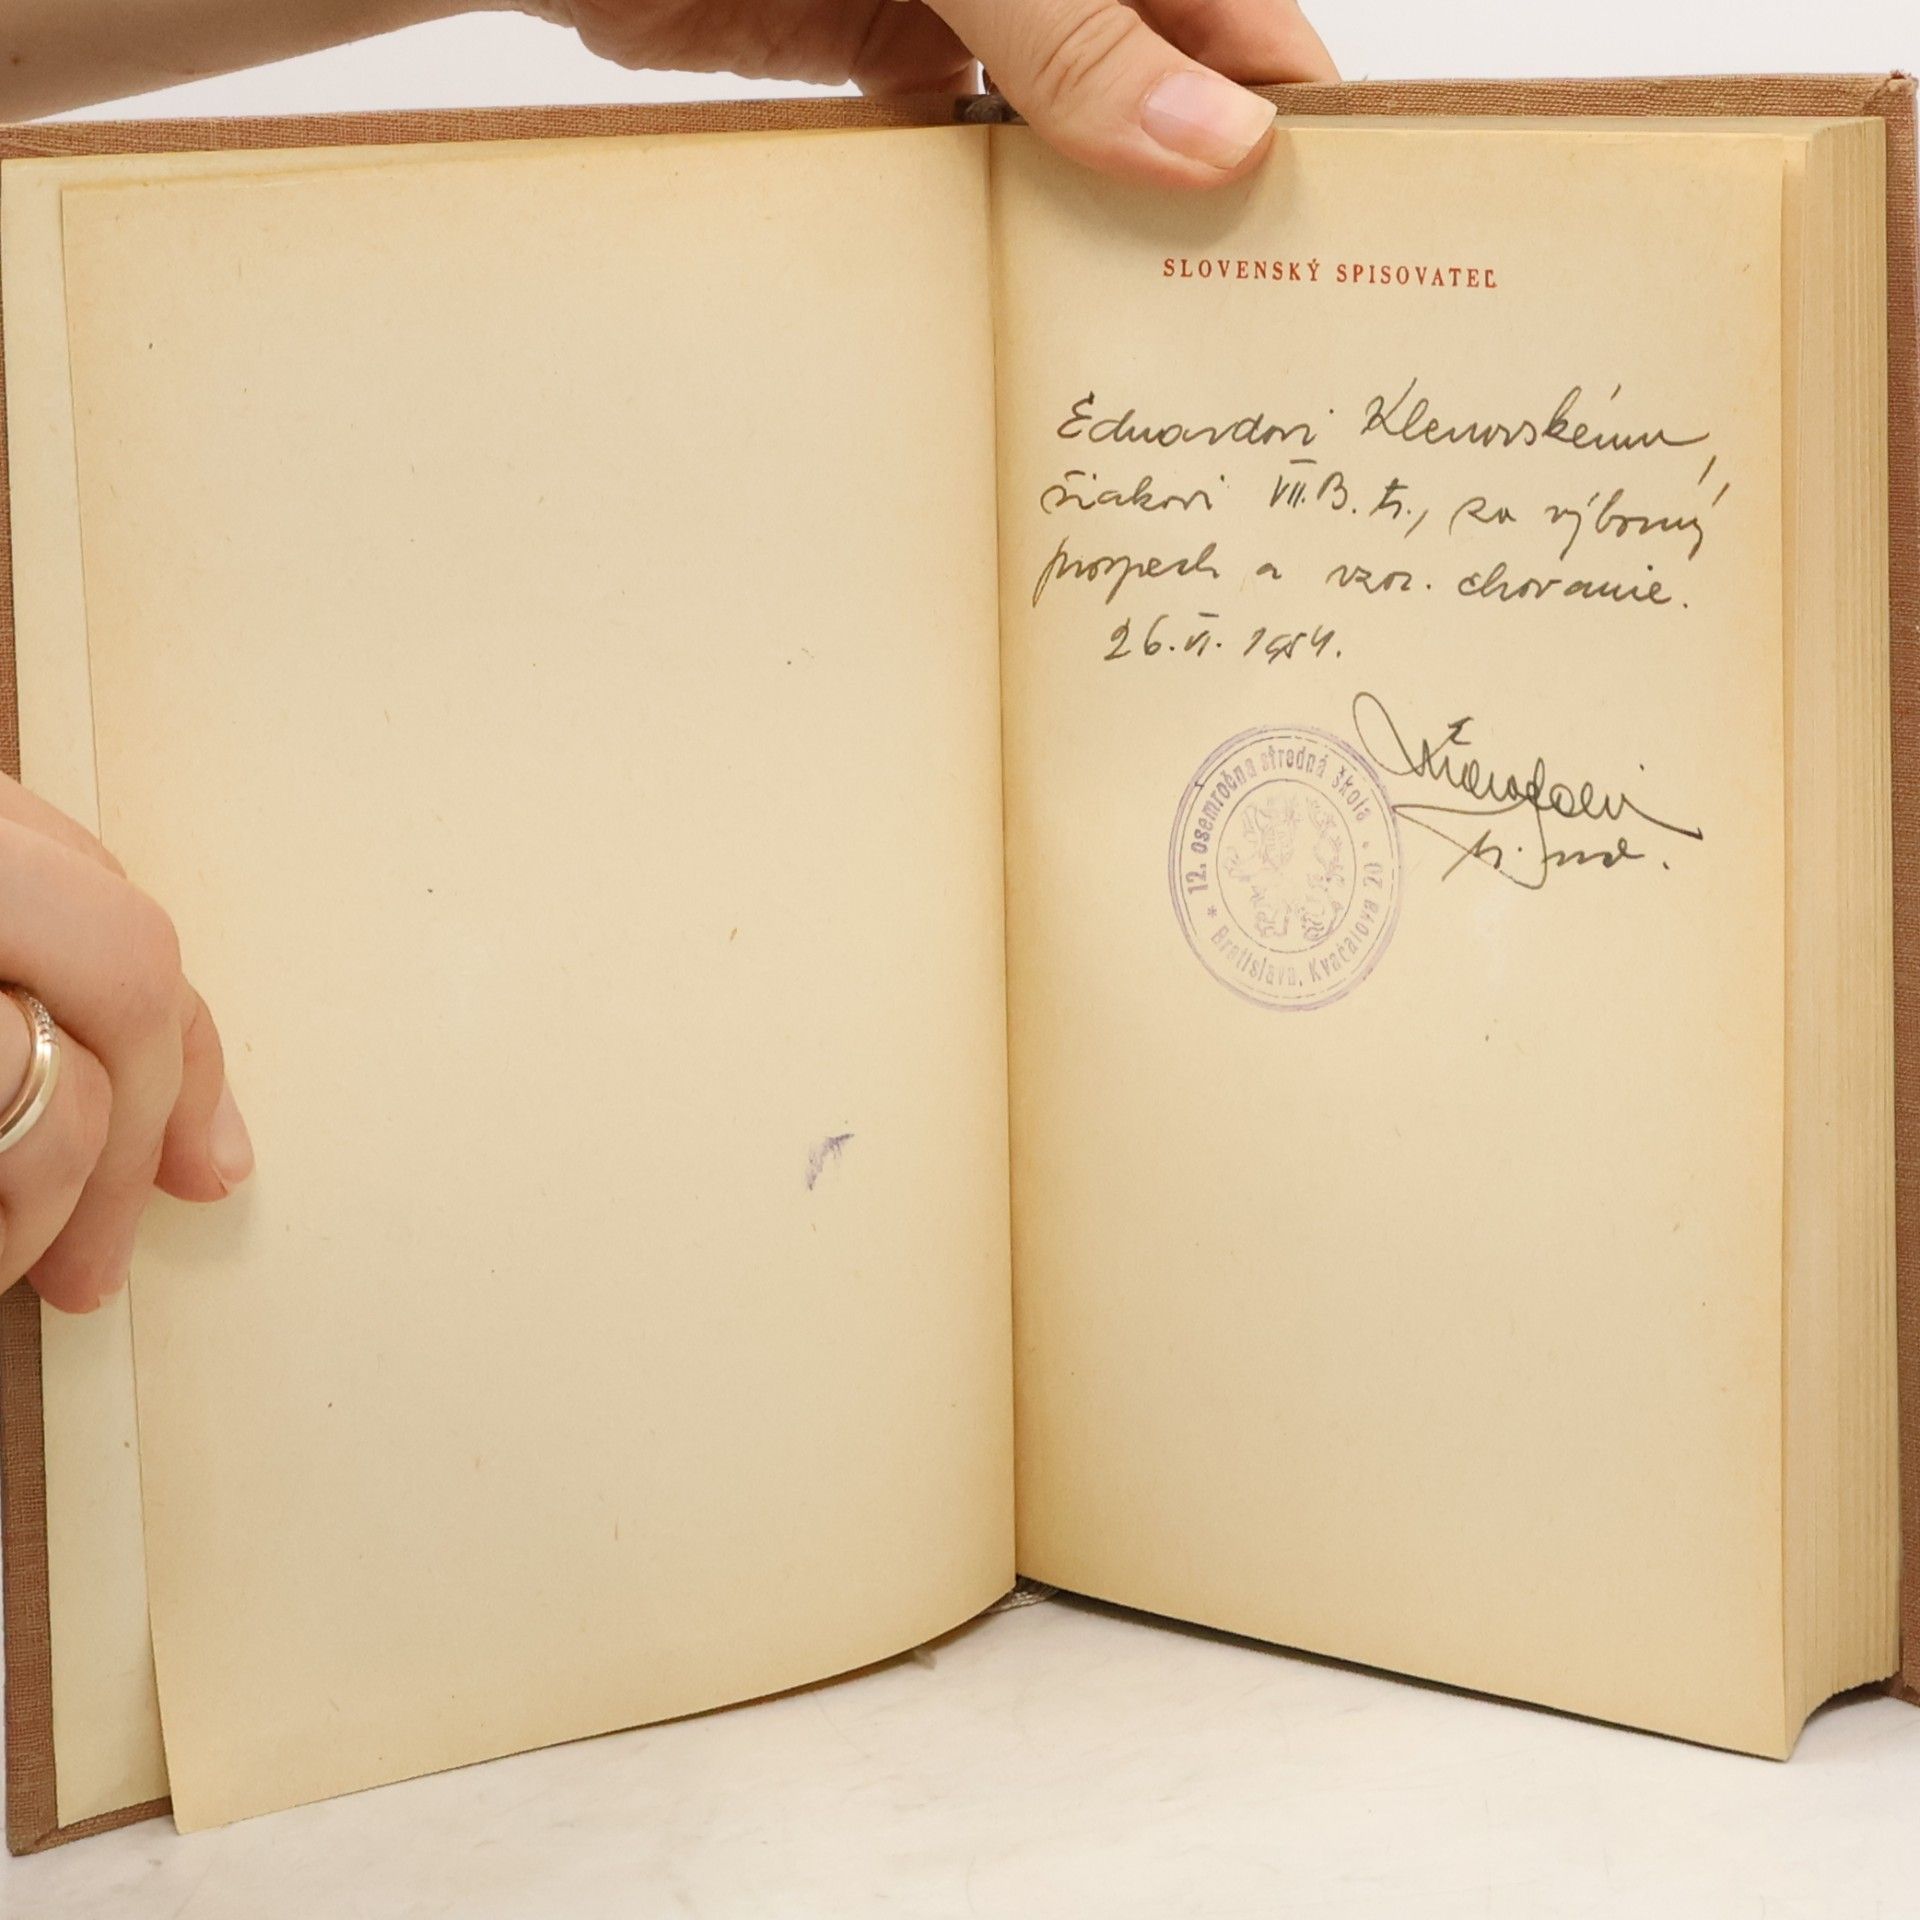 SLOVENSKÝ SPISOVATEĽ
Eduardovi Klenovskému,
žiakovi VII. B. tr., za výborný
prospech a vzor. chovanie.
26. VI. 1954.
tr. uč.
* 12. osemročná stredná škola *
Bratislava, Kvačalova 20